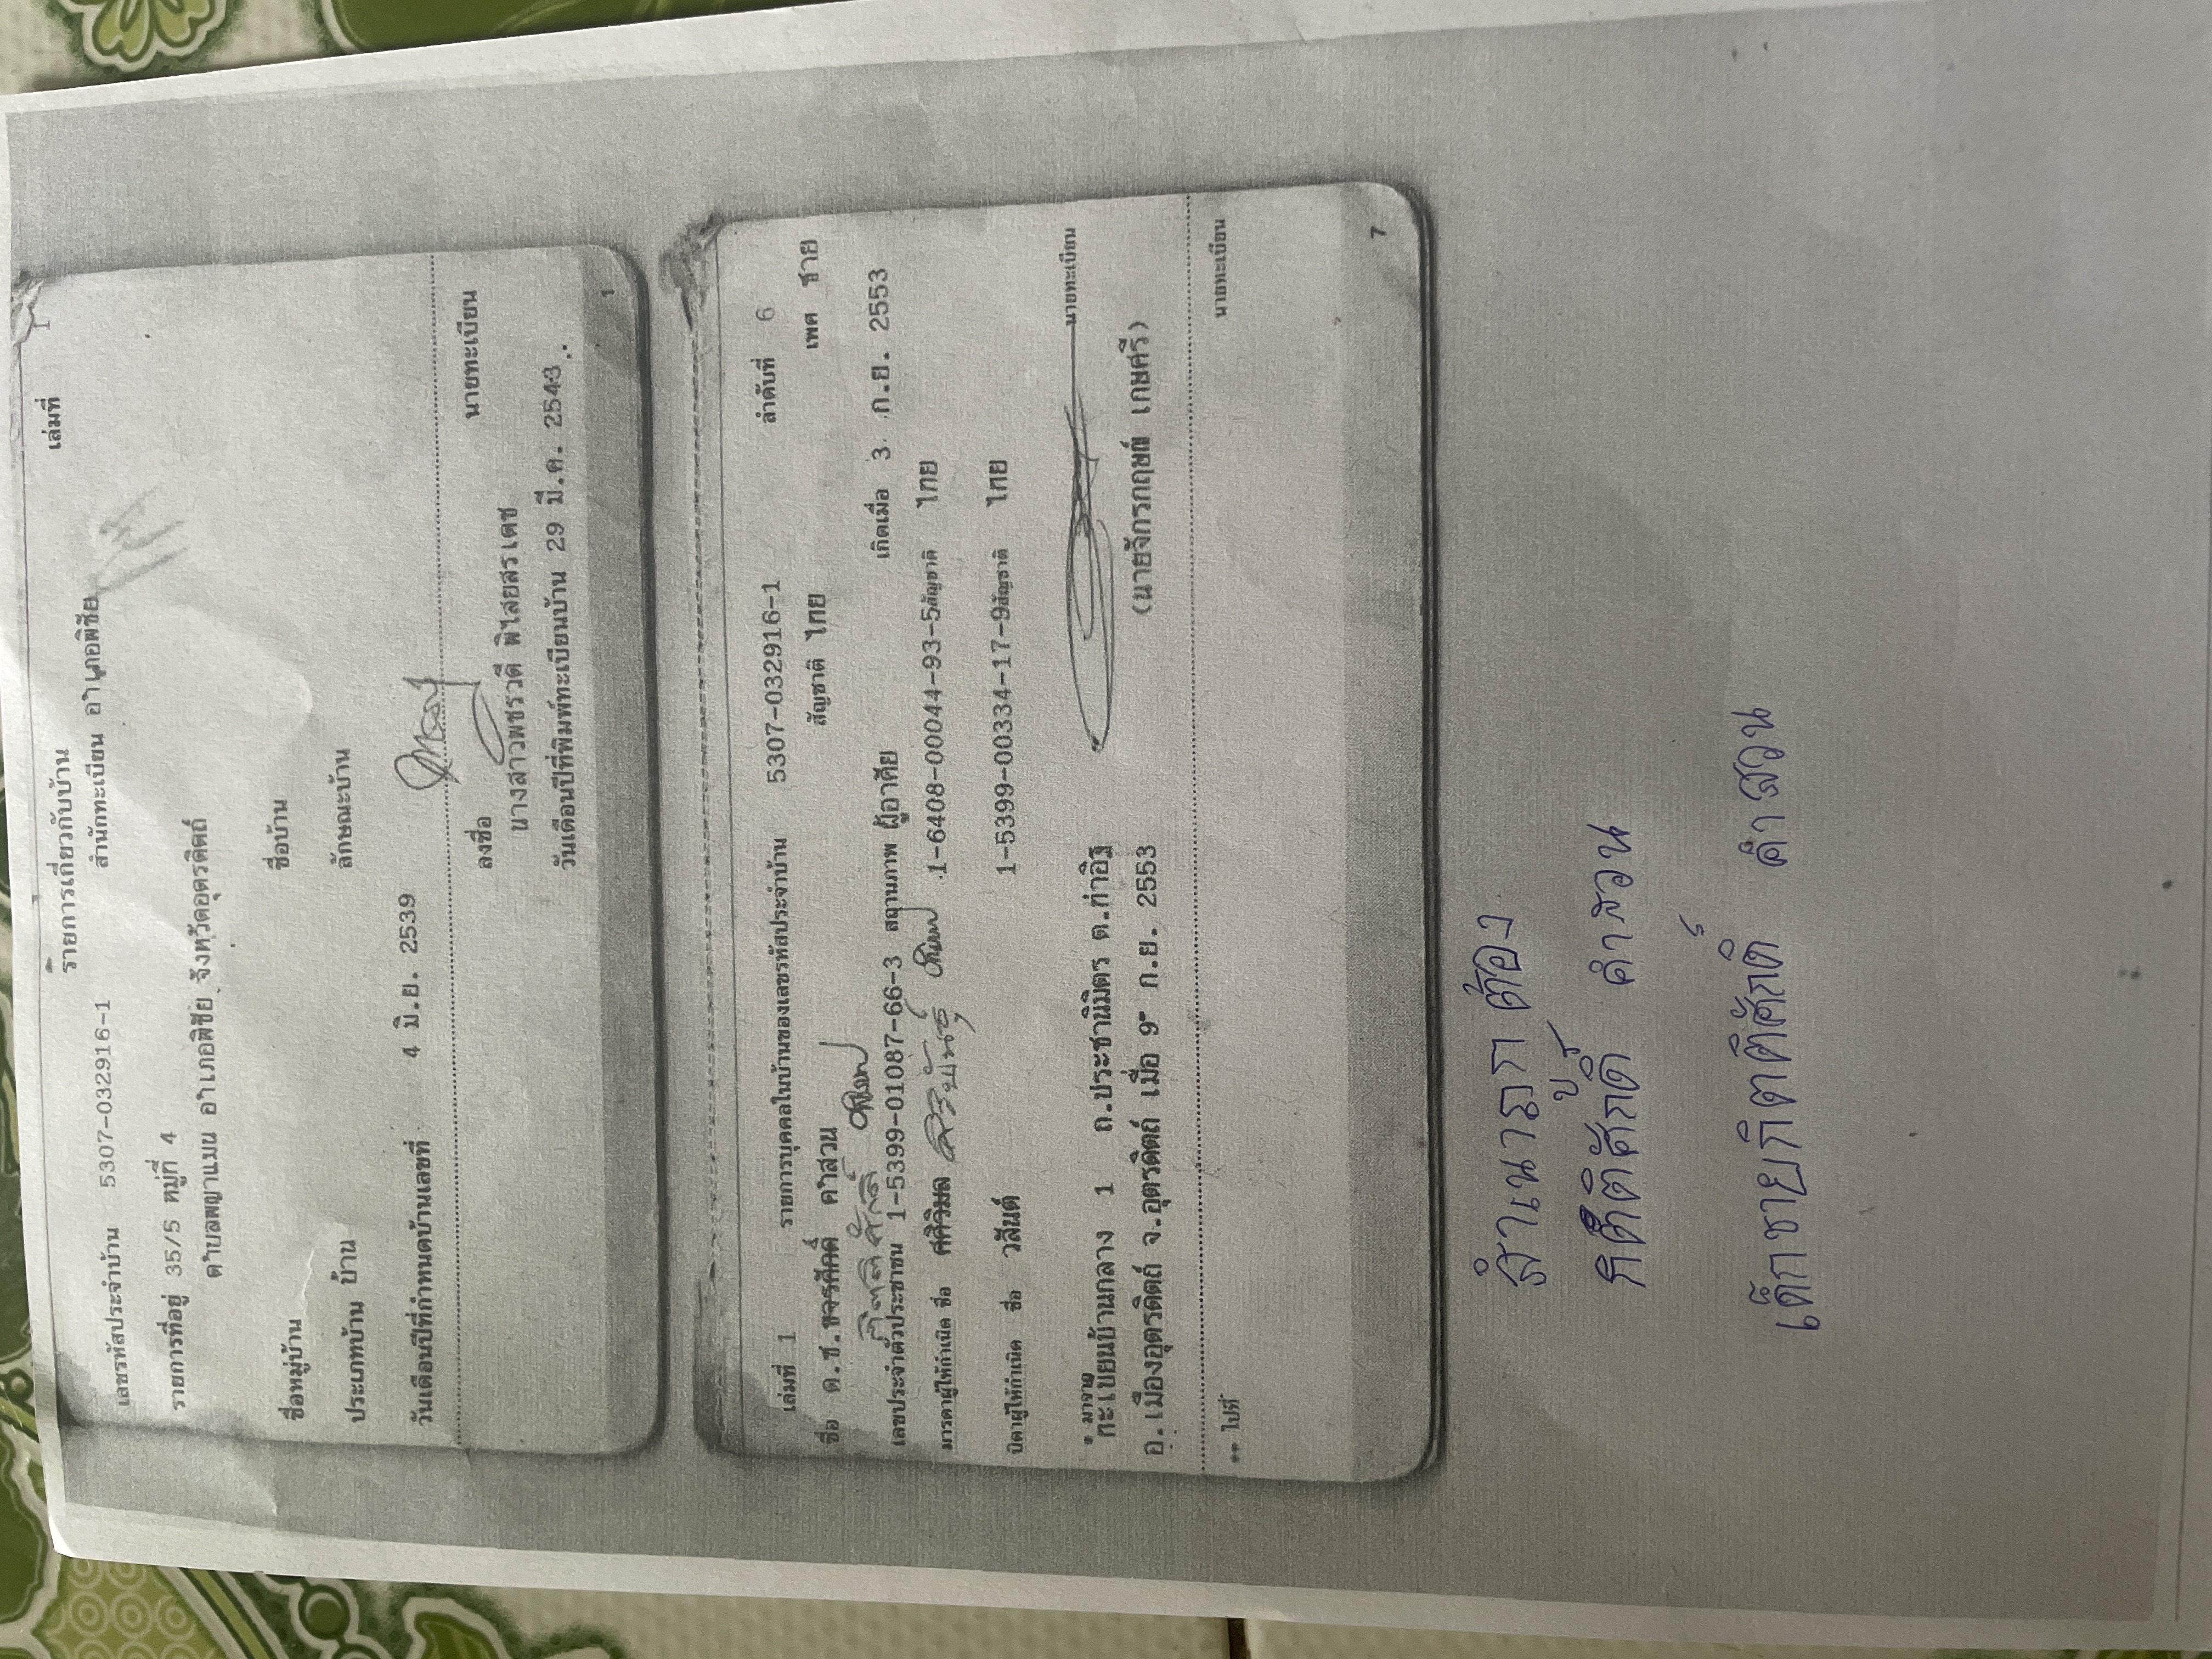 รายการเกี่ยวกับบ้าน เล่มที่ 1
เลขรหัสประจำบ้าน 5307-032916-1 สำนักทะเบียน อำเภอพิชัย
รายการที่อยู่ 35/5 หมู่ที่ 4
ตำบลพญาแมน อำเภอพิชัย จังหวัดอุตรดิตถ์
ชื่อหมู่บ้าน ชื่อบ้าน
ประเภทบ้าน บ้าน ลักษณะบ้าน
วันเดือนปีที่กำหนดบ้านเลขที่ 4 มิ.ย. 2539
ลงชื่อ นายทะเบียน
นางสาวพชรวดี พิไสยสรเดช
วันเดือนปีที่พิมพ์ทะเบียนบ้าน 29 มี.ค. 2543
1
เล่มที่ 1 รายการบุคคลในบ้านของเลขรหัสประจำบ้าน 5307-032916-1 ลำดับที่ 6
ชื่อ ด.ช.ขจรศักดิ์ คำสวน สัญชาติ ไทย เพศ ชาย
กิตติศักดิ์
เลขประจำตัวประชาชน 1-5399-01087-66-3 สถานภาพ ผู้อาศัย เกิดเมื่อ 3 ก.ย. 2553
มารดาผู้ให้กำเนิด ชื่อ ศศิวิมล 1-6408-00044-93-5 สัญชาติ ไทย
บิดาผู้ให้กำเนิด ชื่อ วสันต์ 1-5399-00334-17-9 สัญชาติ ไทย
* มาจาก
ทะเบียนบ้านกลาง 1 ถ.ประชานิมิตร ต.ท่าอิฐ นายทะเบียน
อ.เมืองอุตรดิตถ์ จ.อุตรดิตถ์ เมื่อ 9 ก.ย. 2553 (นายจักรกฤษณ์ เกษศรี)
** ไปที่ นายทะเบียน
7
สำเนาถูกต้อง
กิตติศักดิ์ คำสวน
เด็กชายกิตติศักดิ์ คำสวน